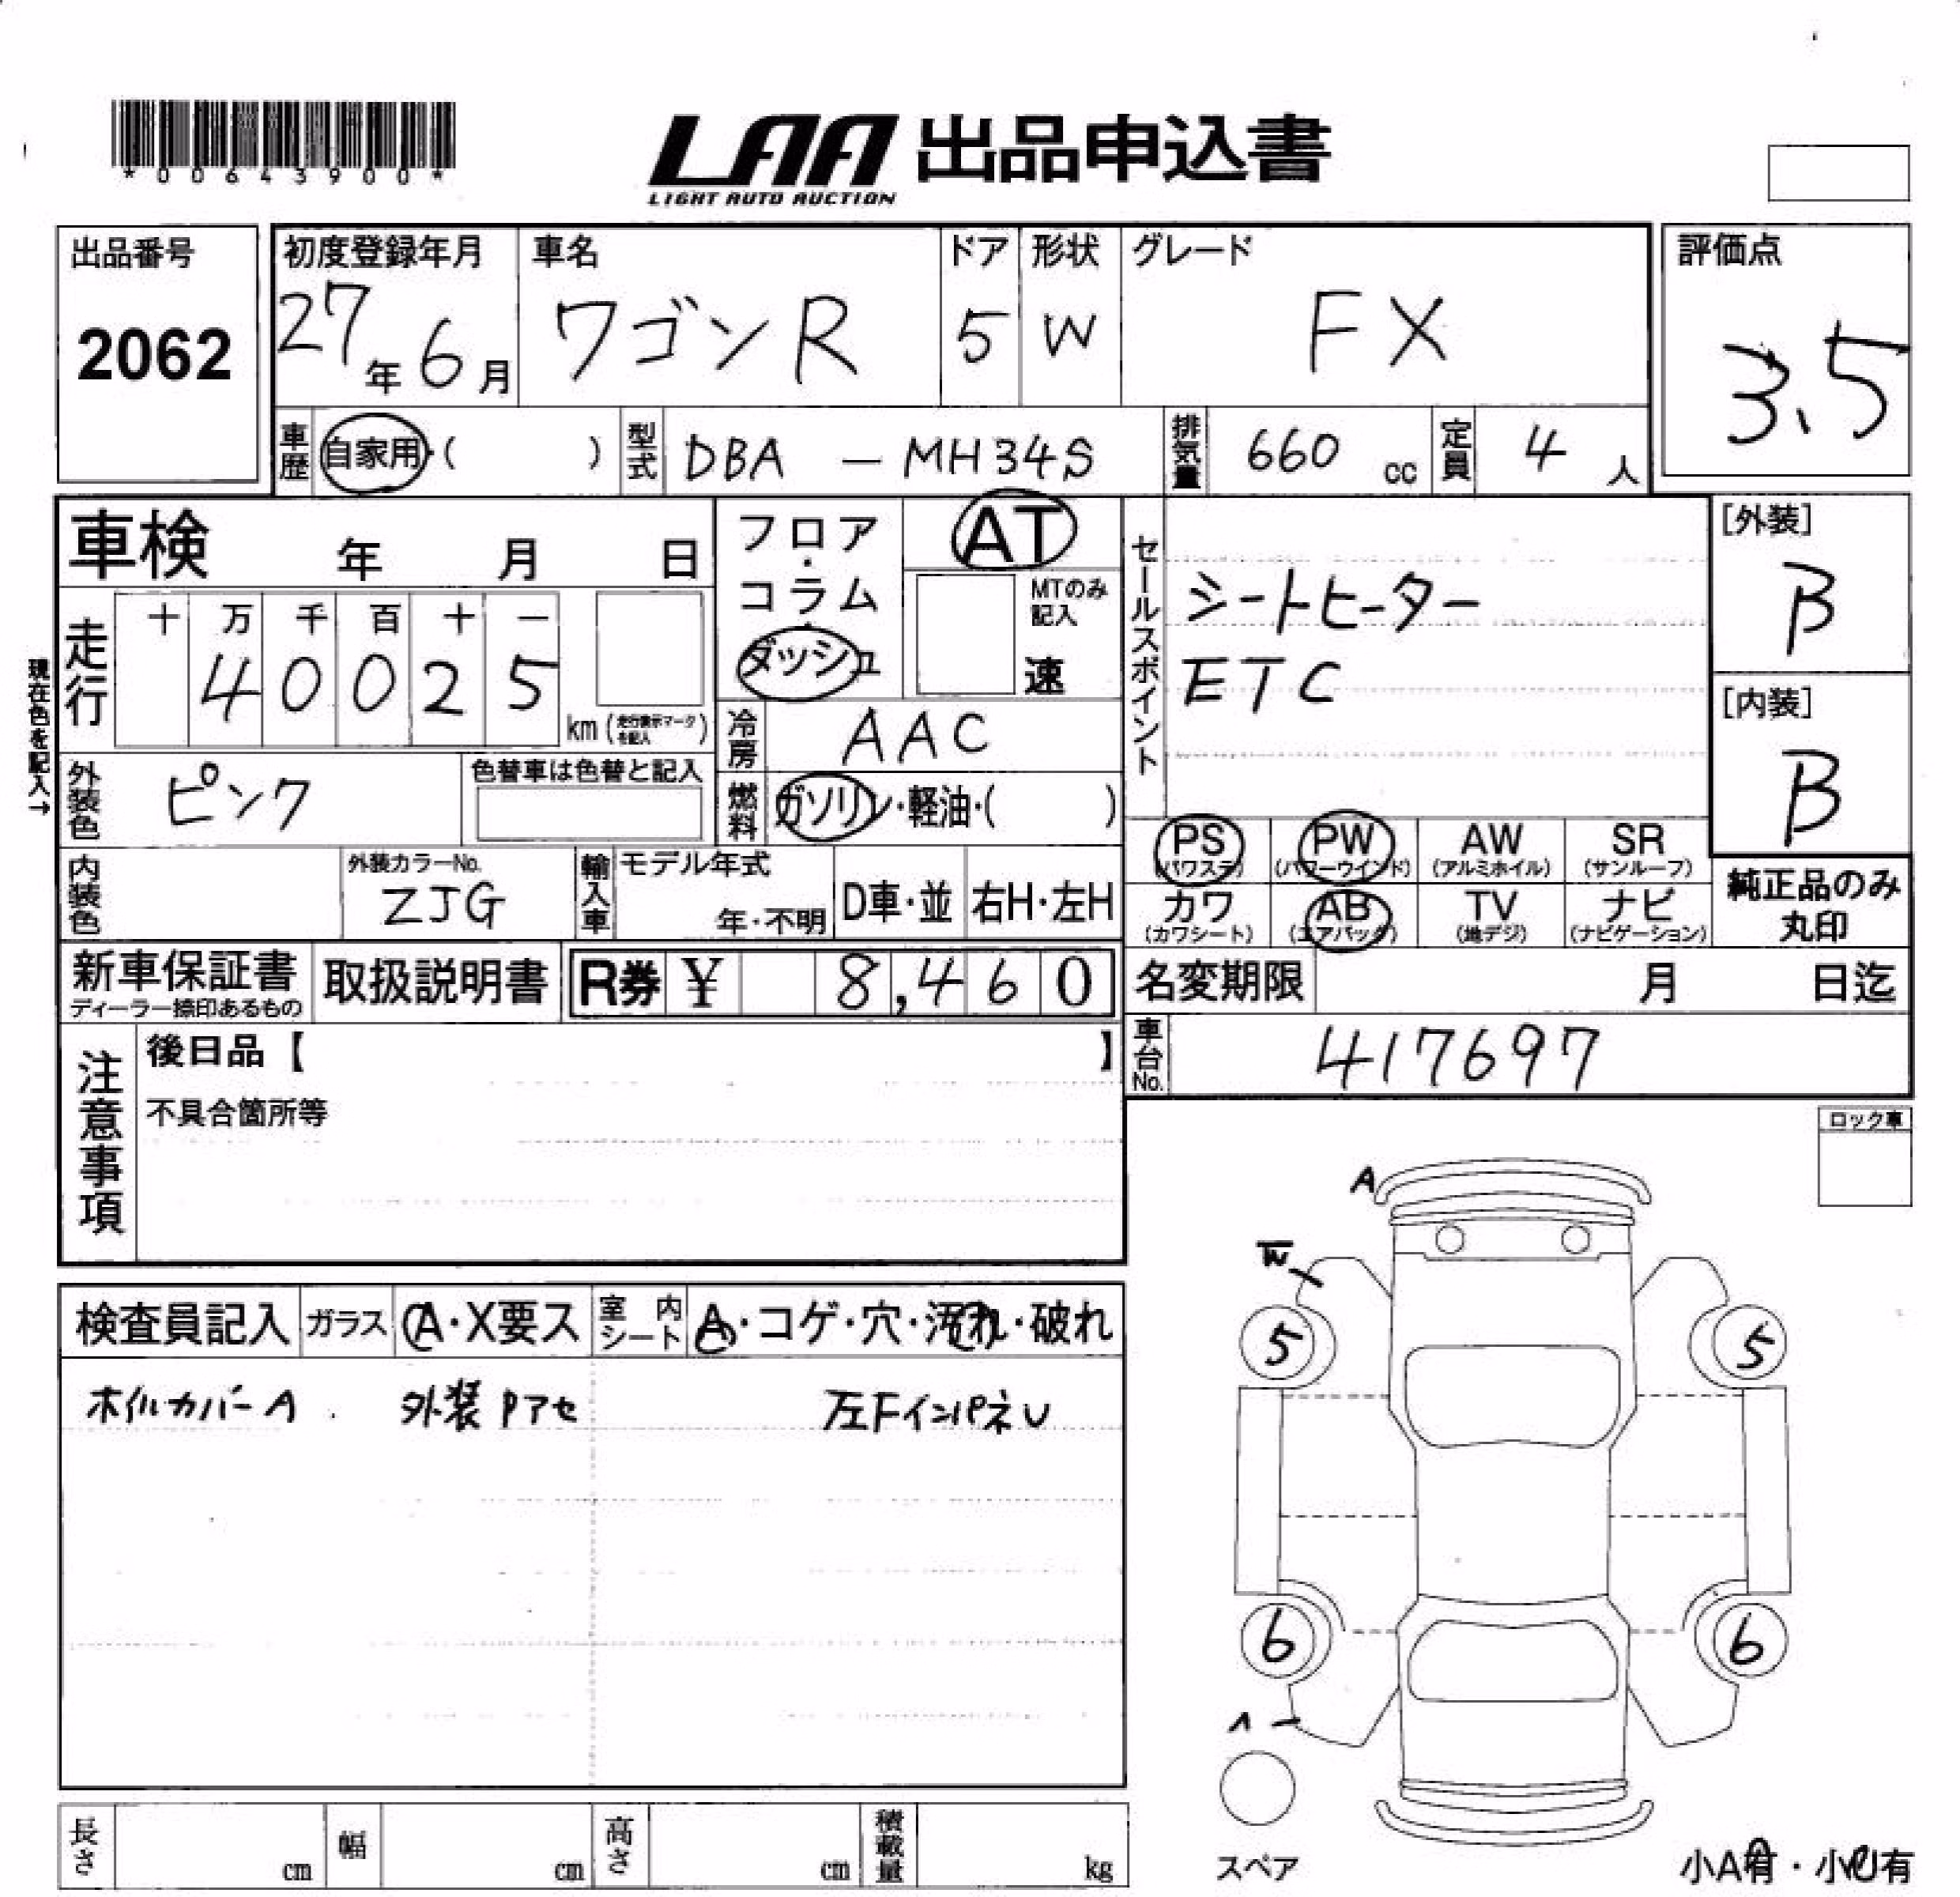 *00643900*
LAA 出品申込書
LIGHT AUTO AUCTION
出品番号 初度登録年月 車名 ドア 形状 グレード 評価点
2062 27年6月 ワゴンR 5 W FX 3.5
車歴 自家用・( ) 型式 DBA － MH34S 排気量 660 cc 定員 4 人
車検 年 月 日
フロア・コラム・ダッシュ
AT
MTのみ記入
速
セールスポイント
シートヒーター
ETC
[外装]
B
[内装]
B
現在色を記入→
走行 十 万 千 百 十 一
4 0 0 2 5
km (走行表示マークを記入)
冷房 AAC
外装色 ピンク 色替車は色替と記入
燃料 ガソリン・軽油・( )
PS (パワステ) PW (パワーウインド) AW (アルミホイル) SR (サンルーフ)
カワ (カワシート) AB (エアバック) TV (地デジ) ナビ (ナビゲーション)
純正品のみ
丸印
内装色 外装カラーNo. ZJG 輸入車 モデル年式 年・不明 D車・並 右H・左H
新車保証書 取扱説明書 R券 ¥ 8,460
ディーラー捺印あるもの
名変期限 月 日迄
車台No. 417697
注意事項
後日品【 】
不具合箇所等
ロック車
検査員記入 ガラス A・X要ス 室内シート A・コゲ・穴・汚れ・破れ
ホイルカバーA 外装Pアセ 左FインパネU
A
W
5 5
6 6
スペア
長さ cm 幅 cm 高さ cm 積載量 kg
小A有・小U有